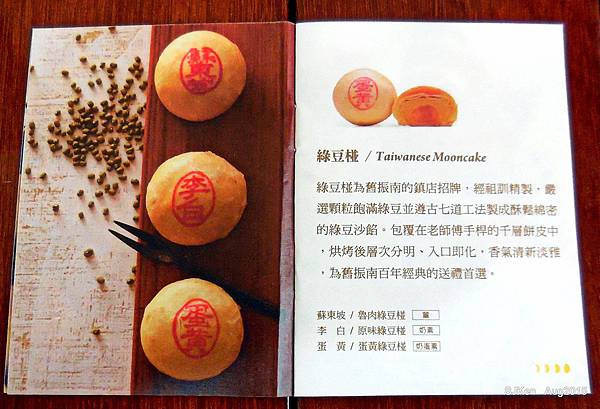 蘇東坡
李白
蛋黃
蛋黃
綠豆椪 / Taiwanese Mooncake
綠豆椪為舊振南的鎮店招牌，經祖訓精製，嚴
選顆粒飽滿綠豆並遵古七道工法製成酥鬆綿密
的綠豆沙餡。包覆在老師傅手桿的千層餅皮中
，烘烤後層次分明、入口即化，香氣清新淡雅
，為舊振南百年經典的送禮首選。
蘇東坡 / 魯肉綠豆椪 葷
李 白 / 原味綠豆椪 奶素
蛋 黃 / 蛋黃綠豆椪 奶蛋素
Aug2015